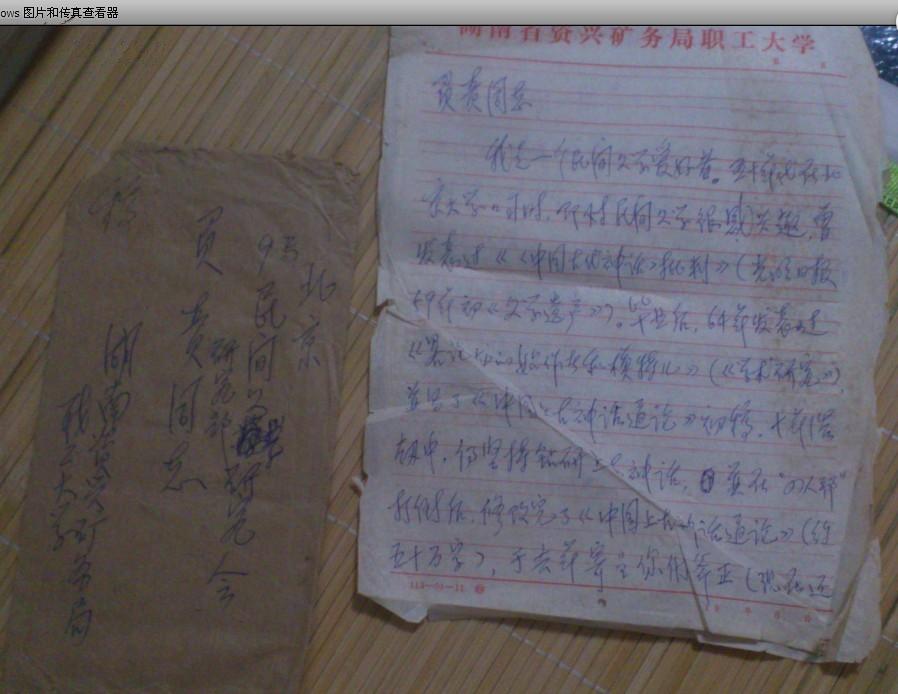 ows 图片和传真查看器
湖南省资兴矿务局职工大学
贾芝同志
我是一个民间文学爱好者。五十年代在北
京大学学习时,即对民间文学很感兴趣,曾
发表过《〈中国古代神话〉批判》(光明日报
59年初《文学遗产》)。毕业后,64年发表过
(《学术研究》),
并写了《中国上古神话通论》初稿,十年浩
劫中,仍坚持钻研上古神话,并在“四人帮”
打倒后,修改完了《中国上古神话通论》(约
五十万字),于去年寄呈你们斧正(现在还
113—01—11
北京
民间文学研究会
研究部
同志
湖南资兴矿务局
职工大学